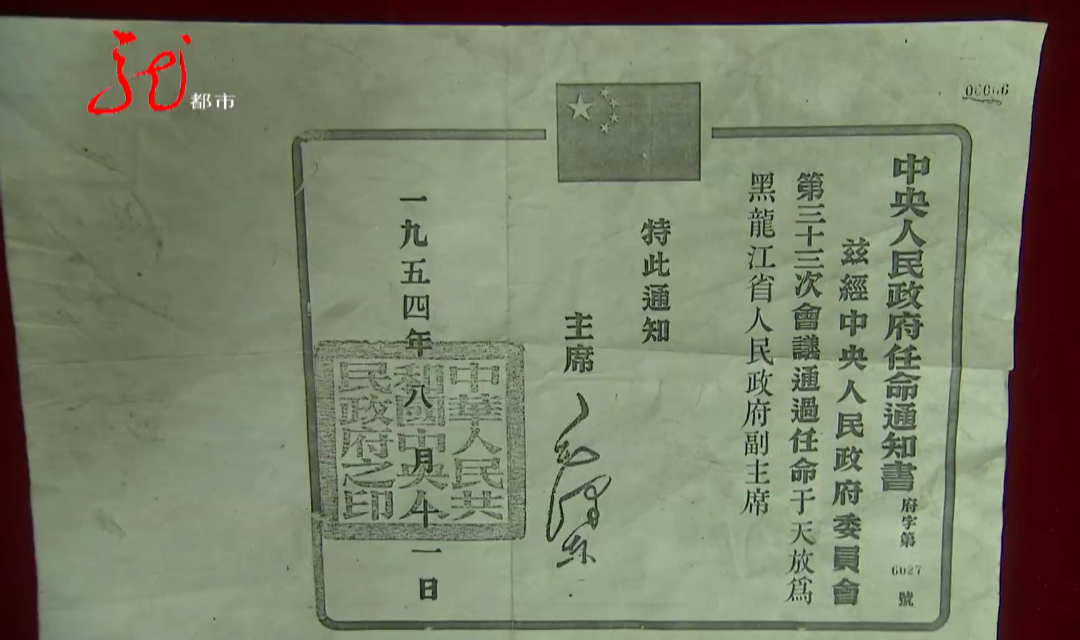 都市
00066
中央人民政府任命通知書
府字第 6027 號
茲經中央人民政府委員會
第三十三次會議通過任命于天放爲
黑龍江省人民政府副主席
特此通知
主席 毛澤东
一九五四年八月十一日
中華人民共
和國中央人
民政府之印